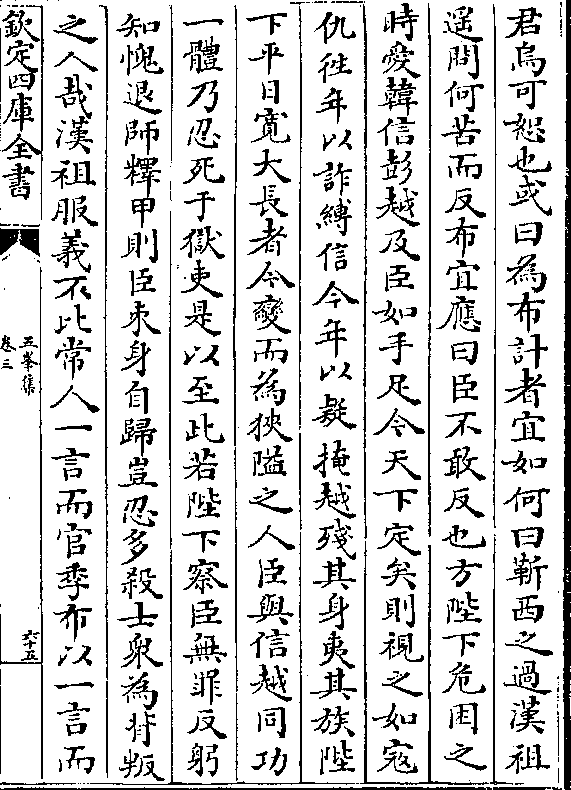 君烏可恕也或曰為布計者宜如何曰蘄西之過漢祖
遥問何苦而反布宜應曰臣不敢反也方陛下危困之
時愛韓信彭越及臣如手足今天下定矣則視之如寇
仇徃年以詐縛信今年以疑掩越殘其身夷其族陛
下平日寛大長者今變而為狹隘之人臣與信越同功
一體乃忍死于獄吏是以至此若陛下察臣無罪反躬
知愧退師釋甲則臣束身自歸豈忍多殺士衆為背叛
之人哉漢祖服義不比常人一言而官季布以一言而
欽定四庫全書
五峯集
卷三
六十五